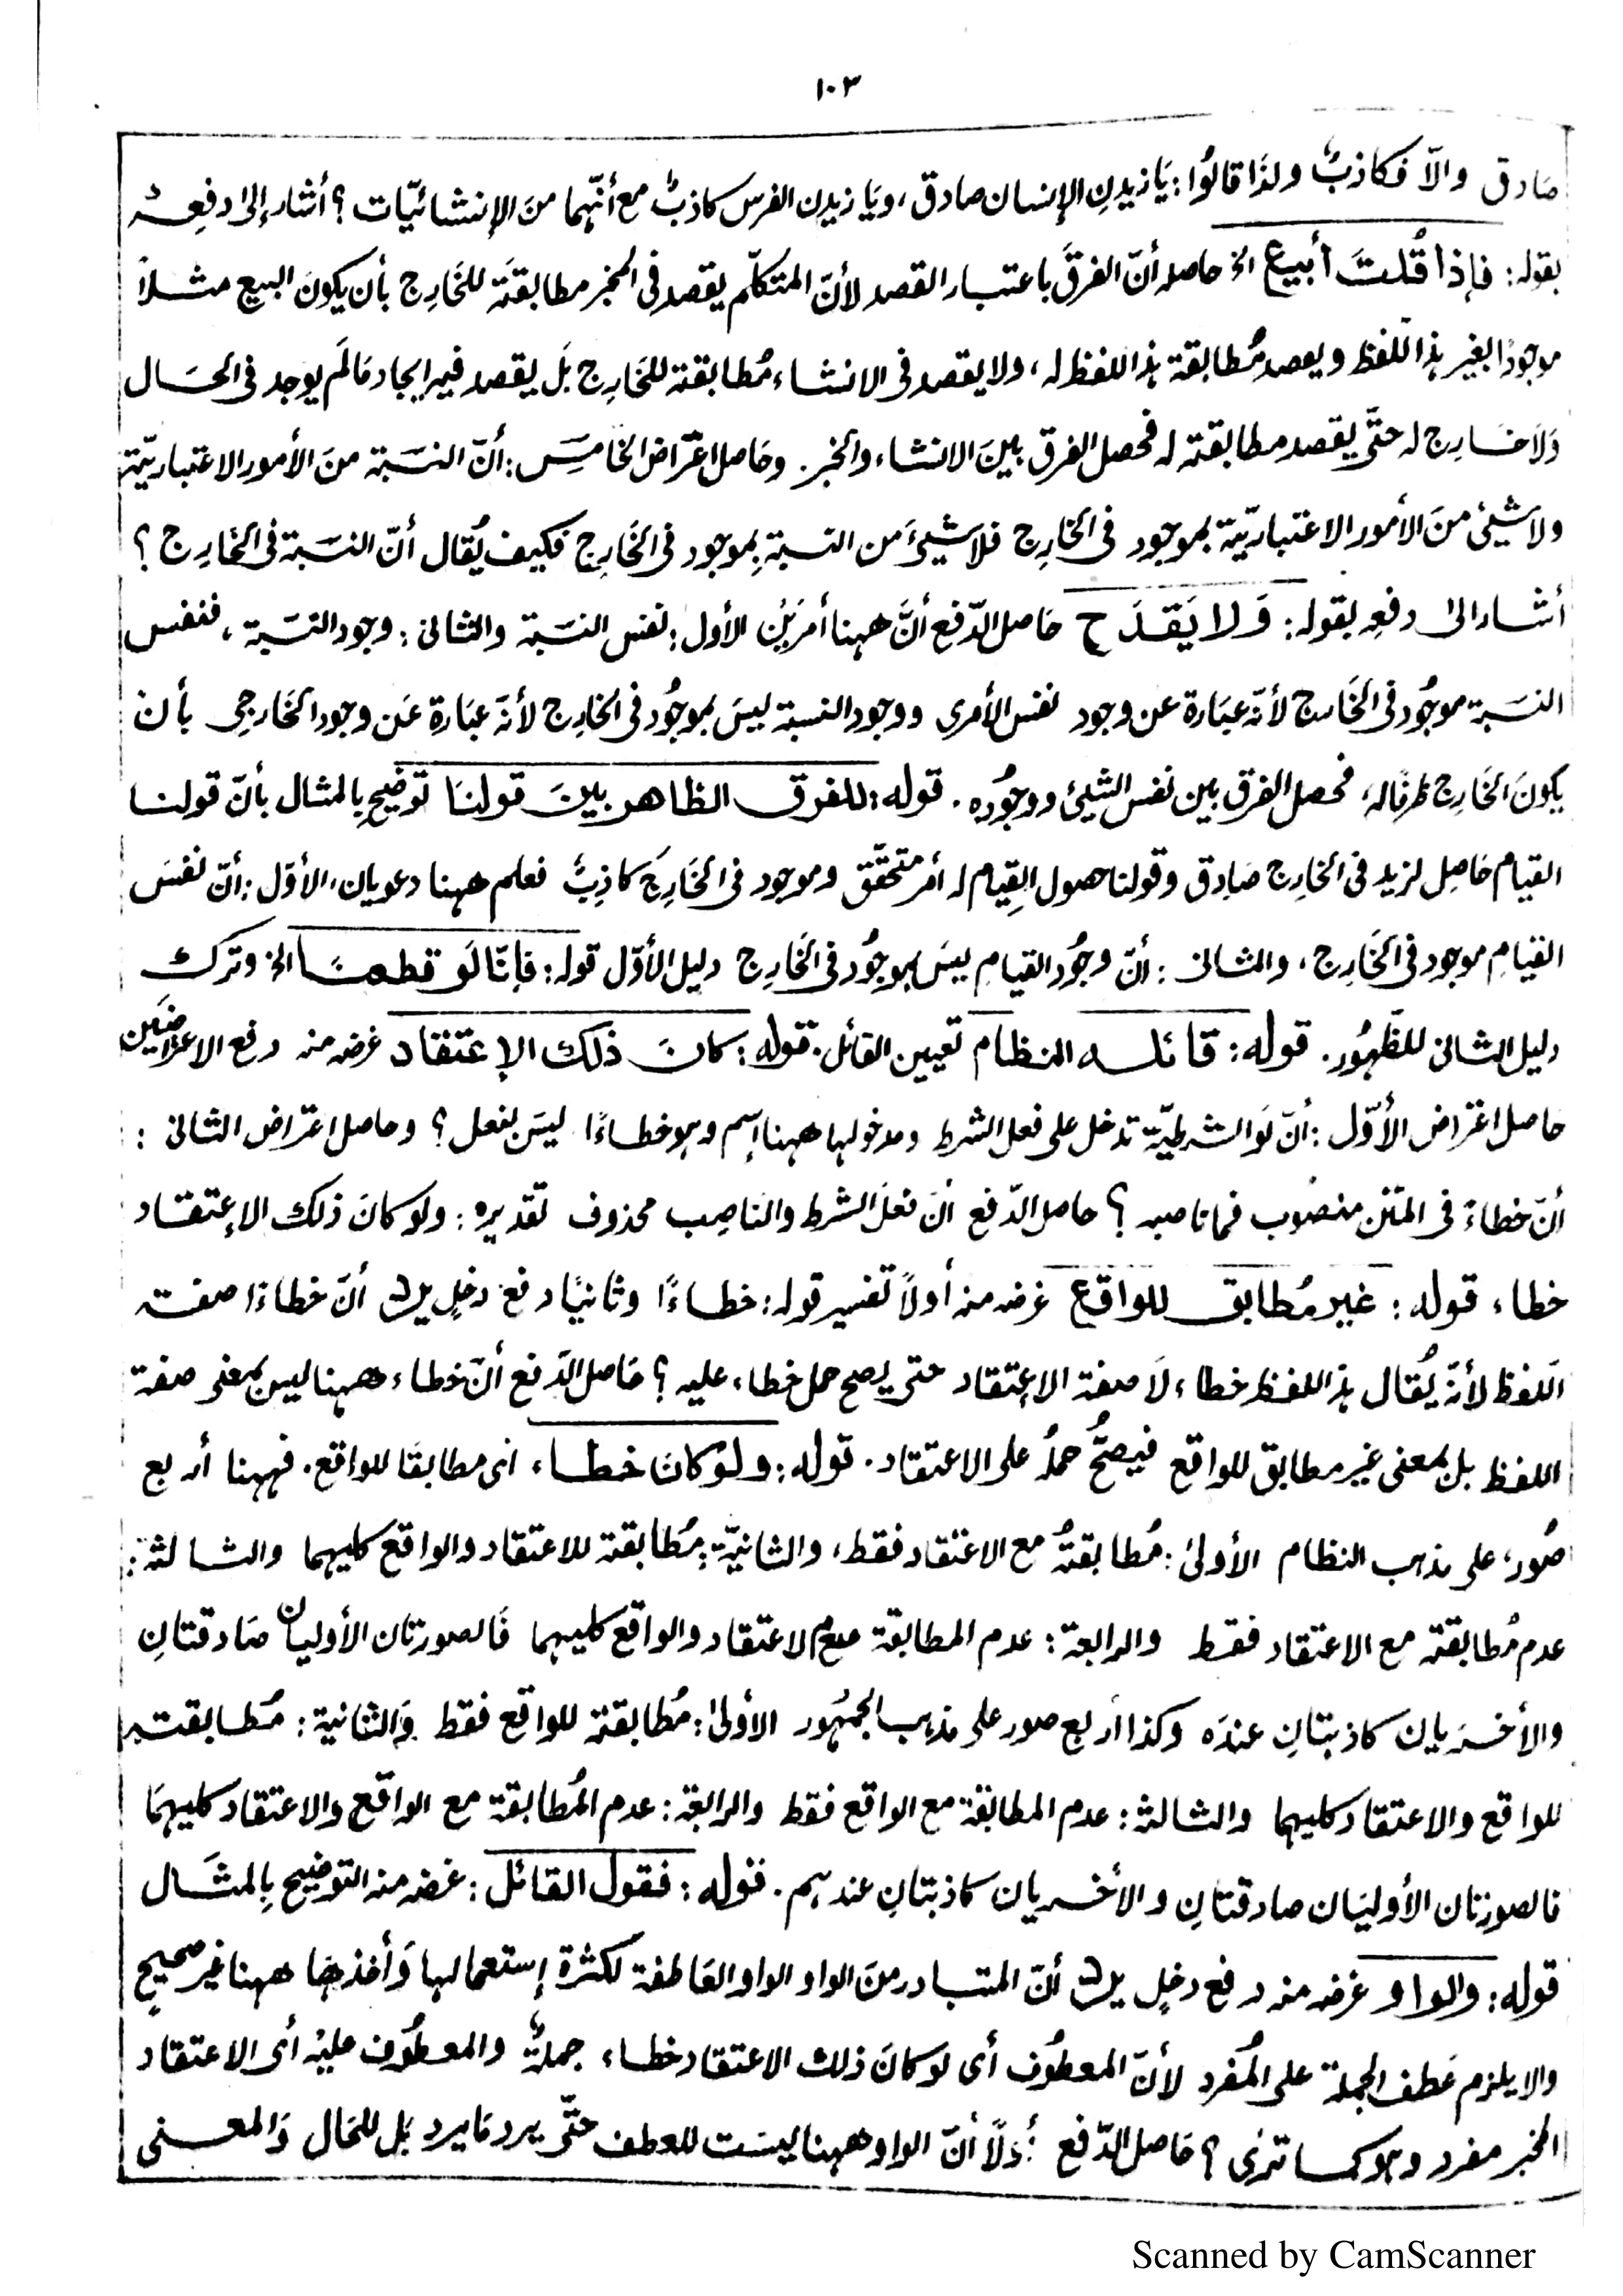 ١٠٣
صَادق والاّ فكاذبٌ ولذَا قالوُا: يَا زيدِنِ الإنسان صادق، ويَا زيدن الفرس كاذبٌ مع أنّهما منَ الإنشائيّات؟ أشار إلىٰ دفعِہٖ
بقوله: فإذا قُلتَ أبيع الخ حاصله أنّ الفرقَ باعتبار القصد لأنّ المتكلّم يقصد فی الخبر مطابقتَہ للخَارِج بأن يكونَ البيع مثلاً
موجودًا بغير ہذا اللفظ ويقصد مُطابقة ہذا اللفظ لہ، ولا يقصد فی الانشاء مُطابقتہ للخَارِج بَل يقصد فيہ ايجاد مَا لَم يوجد فی الحَال
وَلاَ خَارِج لہ حتّٰی يقصد مطابقتہ لہ فحصل الفرق بينَ الانشاء والخبر. وحَاصل اعتراض الخَامسِ: أنّ النسَبة منَ الأمور الاعتباريّة
ولا شیئَ منَ الأمور الاعتباريّة بموجود فی الخارِج فلا شیئَ من النسبةِ بموجود فی الخَارِج فكيف يُقال أنّ النسَبة فی الخَارِج؟
أشار الیٰ دفعہٖ بقوله: وَلا يَقدَح حَاصل الدّفع أنَّ ھہنا أمرَيْن الأول: نفس النسَبة والثانی: وجود النسَبة، فنفس
النسَبة موجُود فی الخَارج لأنّہ عبَارة عن وجود نفس الأمری ووجود النسبة ليسَ بموجُود فی الخارِج لأنّہ عبَارة عَن وجود الخَارجی بأن
يكونَ الخَارِج ظرفًا لہ، فحصل الفرق بين نفس الشیئ ووجُودہ. قوله: للفرق الظاهر بينَ قولنَا توضيح بِالمثال بأنّ قولنا
القيام حَاصِل لزيد فی الخارِج صَادق وقولنا حصول القِيام لہ أمر متحقَّق وموجود فی الخَارِج كاذِبٌ فعلم ھہنا دعويان، الأوّل: أنّ نفسَ
القيامِ موجود فی الخَارِج، والثانی: أنّ وجُود القيام ليسَ بموجُود فی الخَارِج دليل الأوّل قوله: فإنّا لَو قطعنَا الخ وترك
دليل الثانی للظّہُور. قوله: قائله النظام تعيين القائل. قوله: كانَ ذٰلك الإعتقاد غرضہ منہ دفع الاعتراضَين
حاصل اعتراض الأوّل: أنّ لَو الشرطيّة تدخل علی فعل الشرط ومدخولہا ھہنا إسم وہو خطاءًا ليسَ بفعل؟ وحاصل اعتراض الثانی:
أنّ خطاءً فی المتن منصوب فما ناصبہ؟ حاصل الدّفع أنّ فعلَ الشرط والنَاصِب محذوف تقديرہ: ولو كانَ ذٰلك الإعتقاد
خطاء، قوله: غير مُطابق للواقع غرضہ منہ أولاً تفسير قولہ: خطاءًا وثانيًا دفع دخلٍ يرد أنّ خطاءًا صفت
اللفظ لأنّہ يُقال ہذا اللفظ خطاء، لاَ صفة الإعتقاد حتی يصح حمل خطاء، عليہ؟ حَاصل الدّفع أنّ خطاء، ھہنا ليس بمعنی صفة
اللفظ بل بمعنی غير مطابق للواقع فيصحُّ حملُہ علی الاعتقاد. قوله: ولو كان خطاء، ای مطابقًا للواقع. فہہنا أربع
صُور، علی مذہب النظام الأولیٰ: مُطابقتہُ مع الاعتقاد فقط، والثانيّة: مُطابقتہ للاعتقاد والواقع كليہما والثالثة:
عدم مُطابقتہ مع الاعتقاد فقط والرابعة: عدم المطابقة مع الاعتقاد والواقع كليہما فَالصورتان الأوليان صَادقتانِ
والأخريان كاذبتانِ عندَہ وكذا أربع صور علی مذہب الجمہُور الأولیٰ: مُطابقتہ للواقع فقط وَالثانية: مُطابقتہ
للواقع والاعتقاد كليہما والثالثة: عدم المطابقة مع الواقع فقط والرابعة: عدم المُطابقة مع الواقع والاعتقاد كليہمَا
فالصورتان الأوليَان صادقتانِ والأخريان كاذبتانِ عندہم. قوله: فقول القائل: غرضہ منہ التوضيح بِالمثَال
قوله: والواو غرضہ منہ دفع دخلٍ يرد أنّ المتبادر منَ الواو الواو العَاطفة لكثرة إستعمالہا وَأخذہَا ھہنا غير صحيحٍ
والا يلزم عَطف الجملة علی المُفرد لأنّ المعطوُف أی لو كانَ ذٰلك الاعتقاد خطاء، جملةٌ والمعطوُف عليْہ أی الاعتقاد
الخبر مفرد وہو كما تریٰ؟ حَاصل الدّفع: أوّلاً أنّ الواو ھہنا ليسَت للعطف حتّٰی يرد مَا يرد بَل للحَال وَالمعنی
Scanned by CamScanner